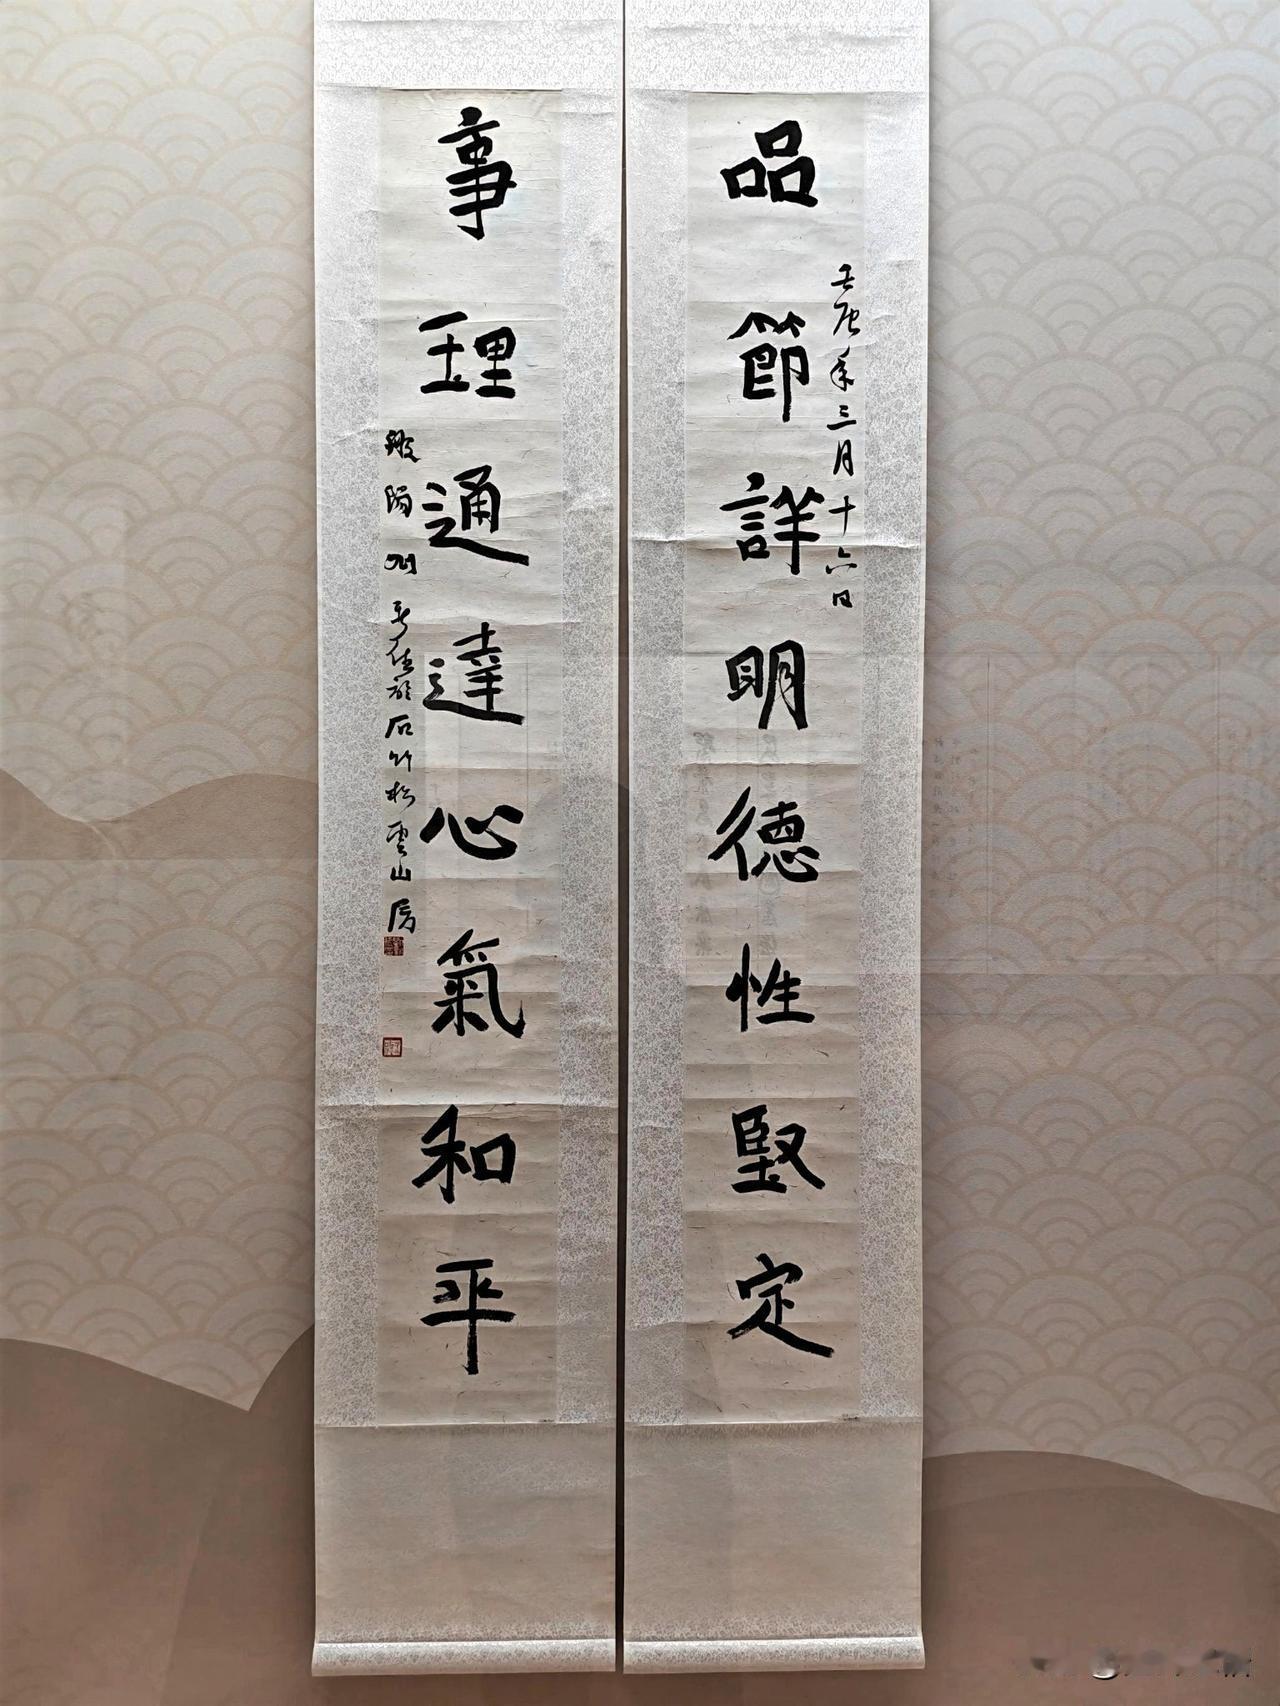 品節詳明德性堅定
壬辰年三月十六日
事理通達心氣和平
般陽 石竹松雲山房